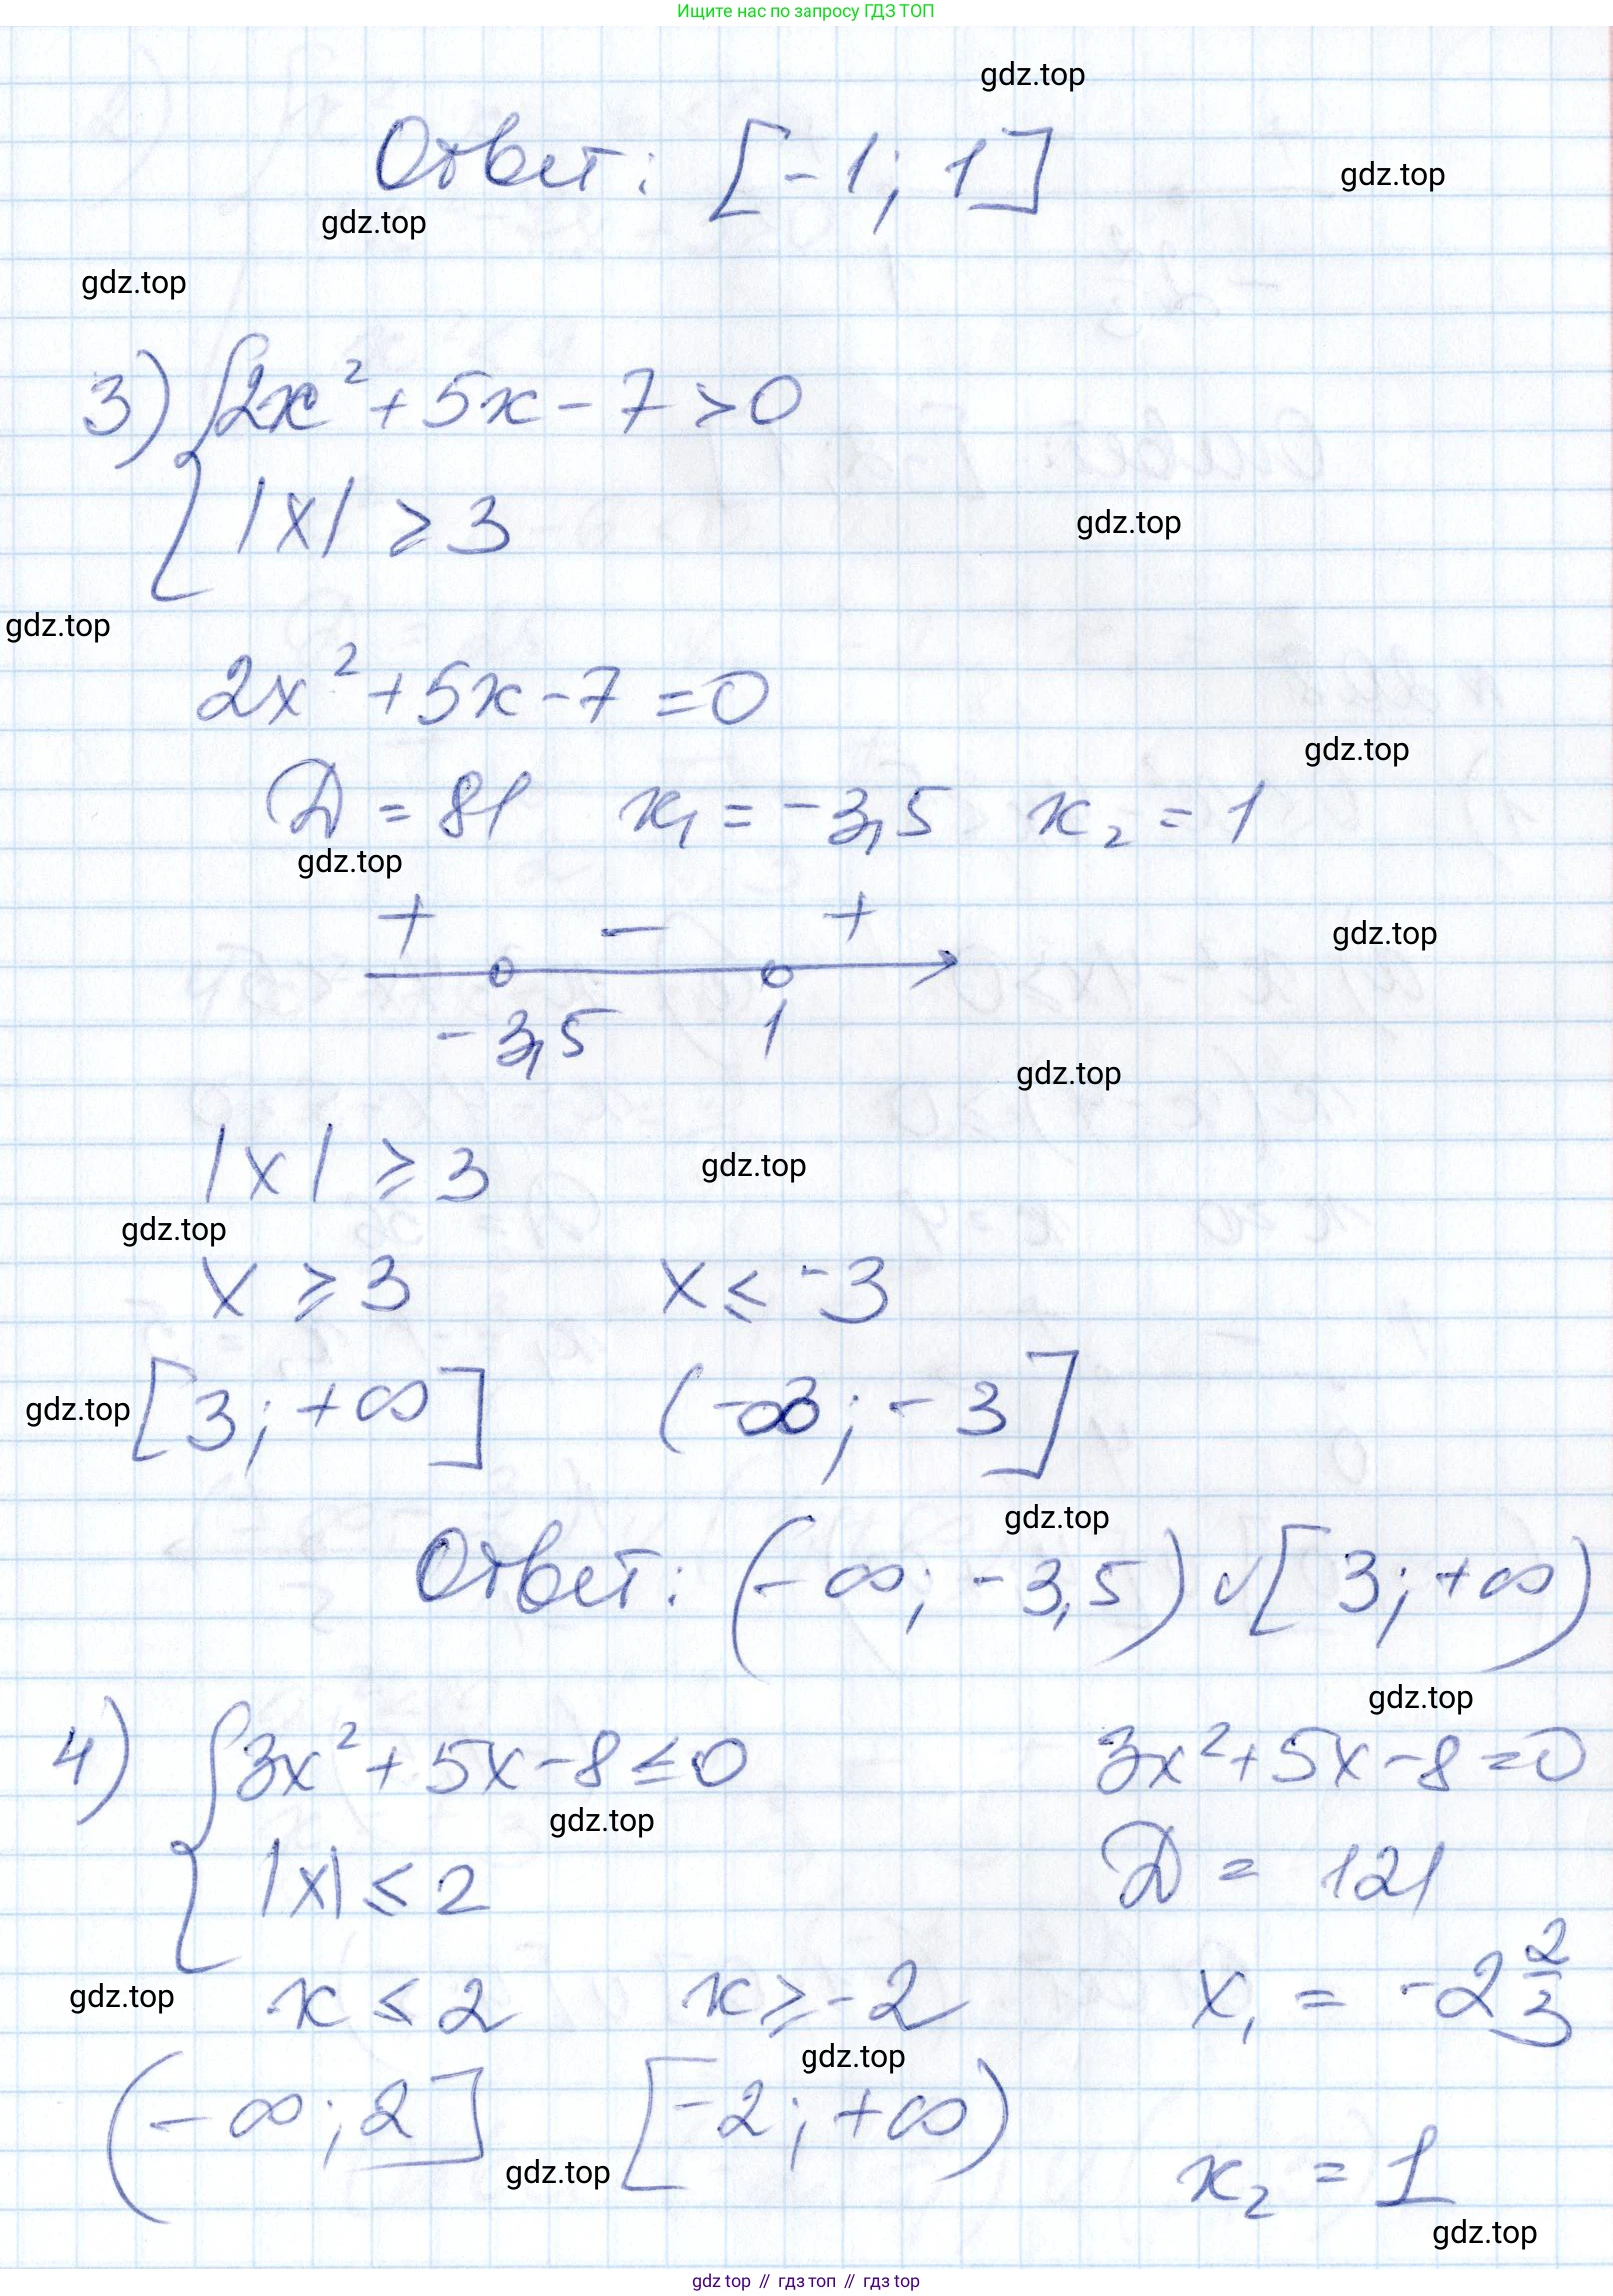 Ищите нас по запросу ГДЗ ТОП
gdz.top
Ответ: [-1; 1]
gdz.top
gdz.top
gdz.top
3) { 2x² + 5x - 7 > 0
|x| ≥ 3
gdz.top
gdz.top
2x² + 5x - 7 = 0
gdz.top
D = 81 x₁ = -3,5 x₂ = 1
gdz.top
+ - +
gdz.top
-3,5 1
gdz.top
|x| ≥ 3
gdz.top
gdz.top
x ≥ 3 x ≤ -3
gdz.top
[3; +∞] (-∞; -3]
gdz.top
Ответ: (-∞; -3,5) ∪ [3; +∞)
gdz.top
4) { 3x² + 5x - 8 ≤ 0 3x² + 5x - 8 = 0
gdz.top
|x| ≤ 2 D = 121
gdz.top
x ≤ 2 x ≥ -2 x₁ = -2 2/3
gdz.top
(-∞; 2] [-2; +∞)
gdz.top
x₂ = 1
gdz.top
gdz top // гдз топ // gdz top